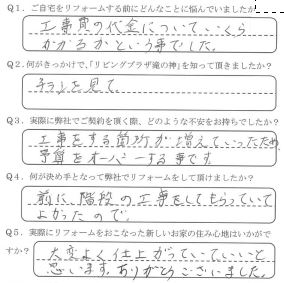 Q1. ご自宅をリフォームする前にどんなことに悩んでいましたか
工事費の代金についていくら
かかるかという事でした。
Q2. 何がきっかけで、「リビングプラザ滝の神」を知って頂けましたか?
チラシを見て
Q3. 実際に弊社でご契約を頂く際、どのような不安をお持ちでしたか?
工事をする箇所が増えていったため
予算をオーバーする事です。
Q4. 何が決め手となって弊社でリフォームをして頂けましたか?
前に階段の工事をしてもらっていて
よかったので。
Q5. 実際にリフォームをおこなった新しいお家の住み心地はいかがで
すか? 大変よく仕上がっていていいと
思います。ありがとうございました。